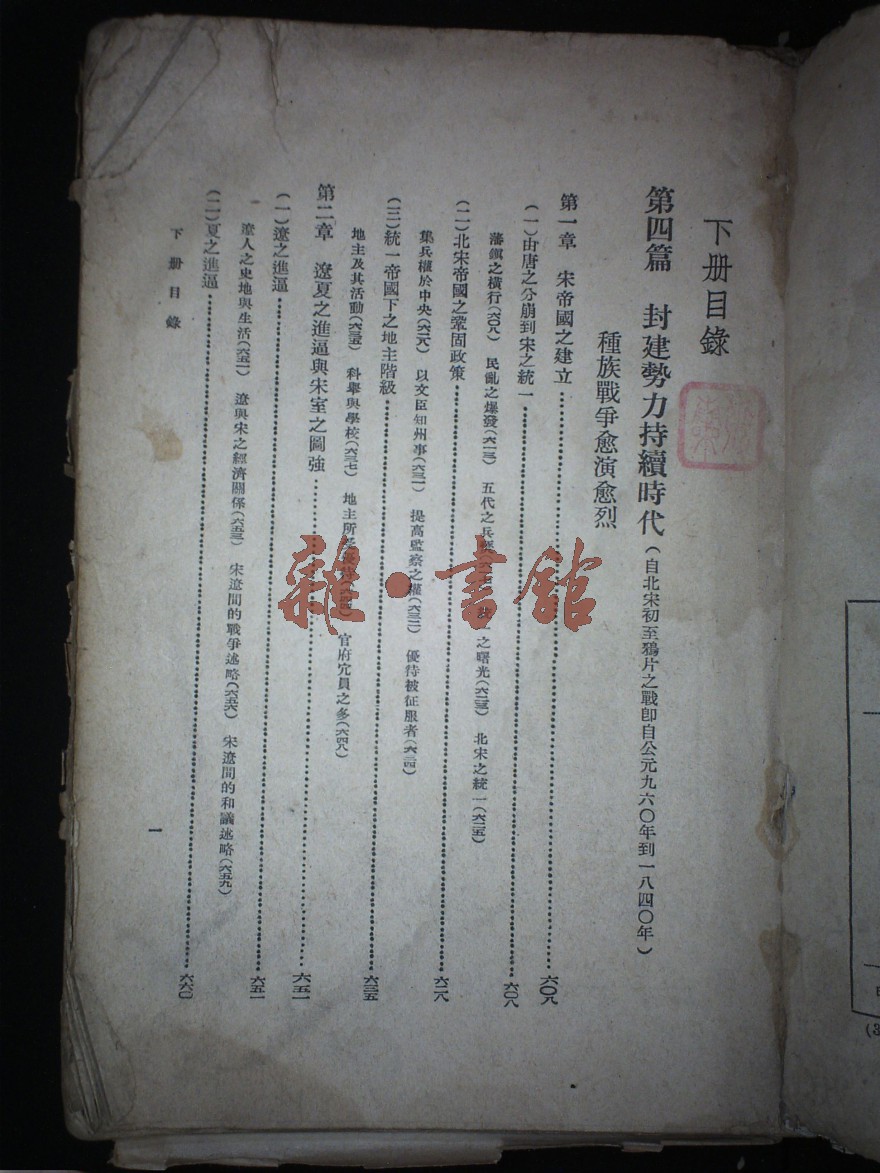 下册目錄
第四篇 封建勢力持續時代(自北宋初至鴉片之戰卽自公元九六〇年到一八四〇年)
種族戰爭愈演愈烈
第一章 宋帝國之建立……六〇八
(一)由唐之分崩到宋之統一……六〇八
藩鎭之橫行(六〇八) 民亂之爆發(六一三) 五代之兵 之曙光(六二三) 北宋之統一(六二五)
(二)北宋帝國之鞏固政策……六二八
集兵權於中央(六二八) 以文臣知州事(六三一) 提高監察之權(六三二) 優待被征服者(六三四)
(三)統一帝國下之地主階級……六三五
地主及其活動(六三五) 科舉與學校(六三七) 地主所 官府宂員之多(六四八)
第二章 遼夏之進逼與宋室之圖強……六五一
(一)遼之進逼……六五一
遼人之史地與生活(六五一) 遼與宋之經濟關係(六五三) 宋遼間的戰爭述略(六五六) 宋遼間的和議述略(六五九)
(二)夏之進逼……六六〇
下册目錄
一
雜·書館